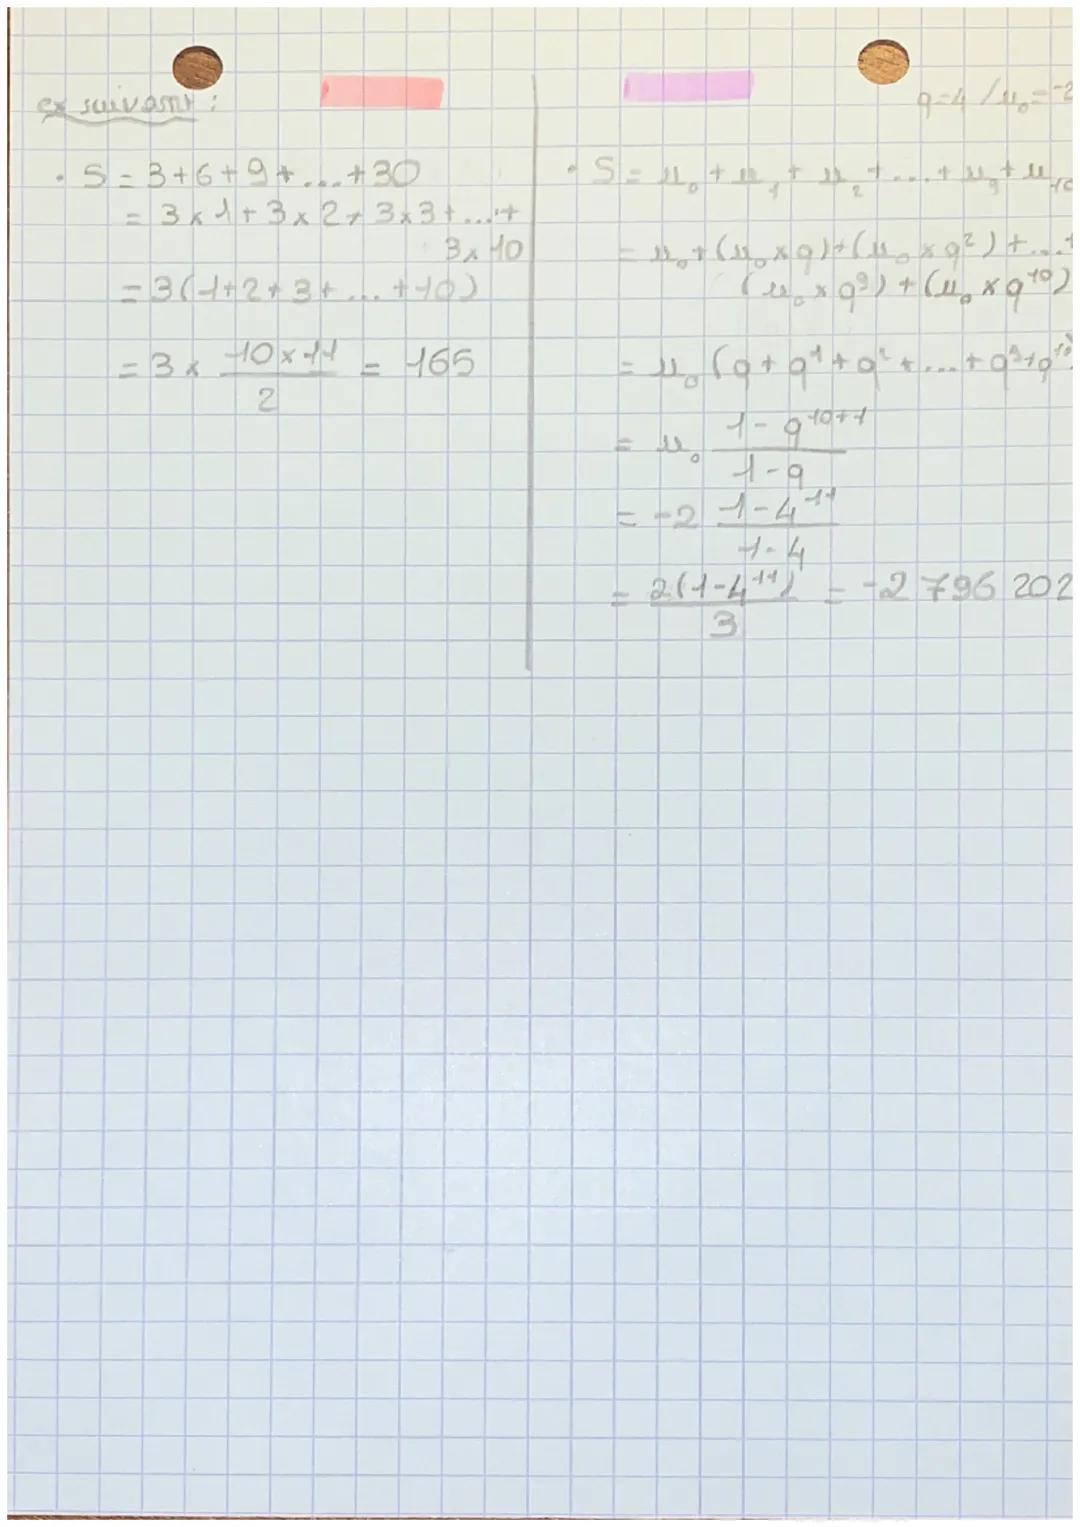 ex suivant :
• S = 3+6+9+...+30
= 3×1+3×2+3×3+...+
3×10
= 3(1+2+3+...+10)
= 3 × (10×11)/2 = 165
q=4 / u₀=-2
• S = u₀ + u₁ + u₂ + ... + u₉ + u₁₀
= u₀+(u₀×q)+(u₀×q²)+...+
(u₀×q⁹)+(u₀×q¹⁰)
= u₀(q+q¹+q²+...+q⁹+q¹⁰)
= u₀ (1-q¹⁰⁺¹)/(1-q)
= -2 (1-4¹¹)/(1-4)
= 2(1-4¹¹)/3 = -2 796 202